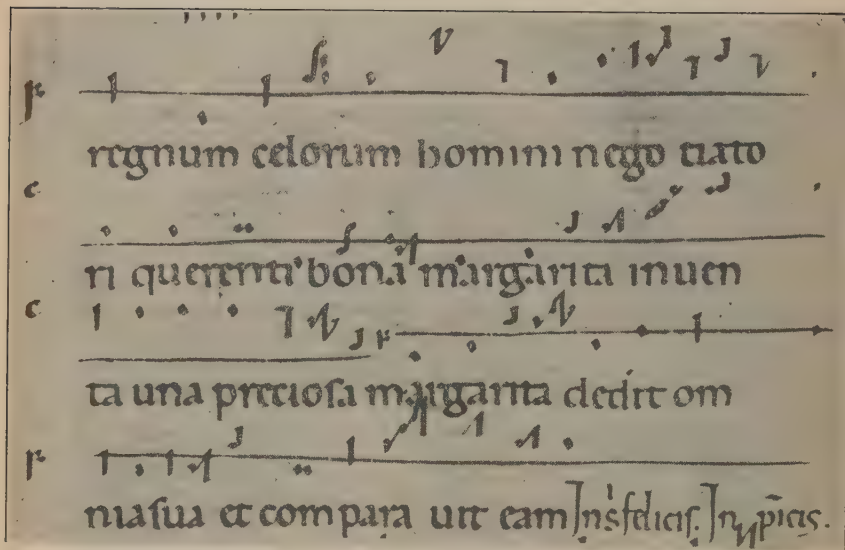 regnum celorum homini nego tiato
ri querenti bona margarita inuen
ta una preciosa margarita dedit om
nia sua et com para uit eam